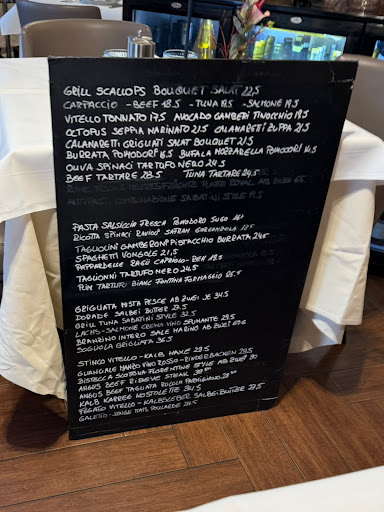 GRILL SCALLOPS BOUQUET SALAT 22,5
CARPACCIO - BEEF 18.5 - TUNA 19.5 - SALMONE 19,5
VITELLO TONNATO 17,5 AVOCADO GAMBERI FINOCCHIO 19,5
OCTOPUS SEPPIA MARINATO 21,5 CALAMARETI ZUPPA 21,5
CALAMARETTI GRIGLIATI SALAT BOUQUET 21,5
BURRATA POMODORI 16,5 BUFALA MOZZARELLA POMODORI 16,5
OLIVA SPINACI TARTUFO NERO 24,5
BEEF TARTARE 23.5 TUNA TARTARE 24,5
PASTA SALSICCIA FRESCA POMODORO SUGO
RICOTTA SPINACI RAVIOLI SAFRAN GORGONZOLA
TAGLIOLINI GAMBERONI PISTACCHIO BURRATA 24,5
SPAGHETTI VONGOLE 21,5
PAPPARDELLE RAGÙ CAPRIOLO - REH 19,5
TAGLIONNI TARTUFO NERO 24,5
TARTUFO BIANC FONTINA FORMAGGIO
GRIGLIATA MISTA PESCE AB ZWEI JE 34,5
DORADE SALBEI BUTTER 27,5
GRILL TUNA SABATINI STYLE 32,5
LACHS-SALMONE CREMA VINO SPUMANTE 29,5
BRANZINO INTERO SALE MARINO AB ZWEI
SOGLIOLA GRIGLIATA 36,5
STINCO VITELLO - KALB HAXE 29,5
GUANCIALE MANZO VINO ROSSO - RINDERBACKEN 29,5
BISTECCA SCOTTONA FLORENTINE STYLE AB ZWEI
ANGUS BEEF RIBEYE STEAK
ANGUS BEEF TAGLIATA RUCOLA PARMIGIANO
KALB KARREE KOTOLETTE 34,5
FEGATO VITELLO - KALBSLEBER SALBEI BUTTER 27,5
GALETTO - JUNGE MAIS POULARDE 24,5